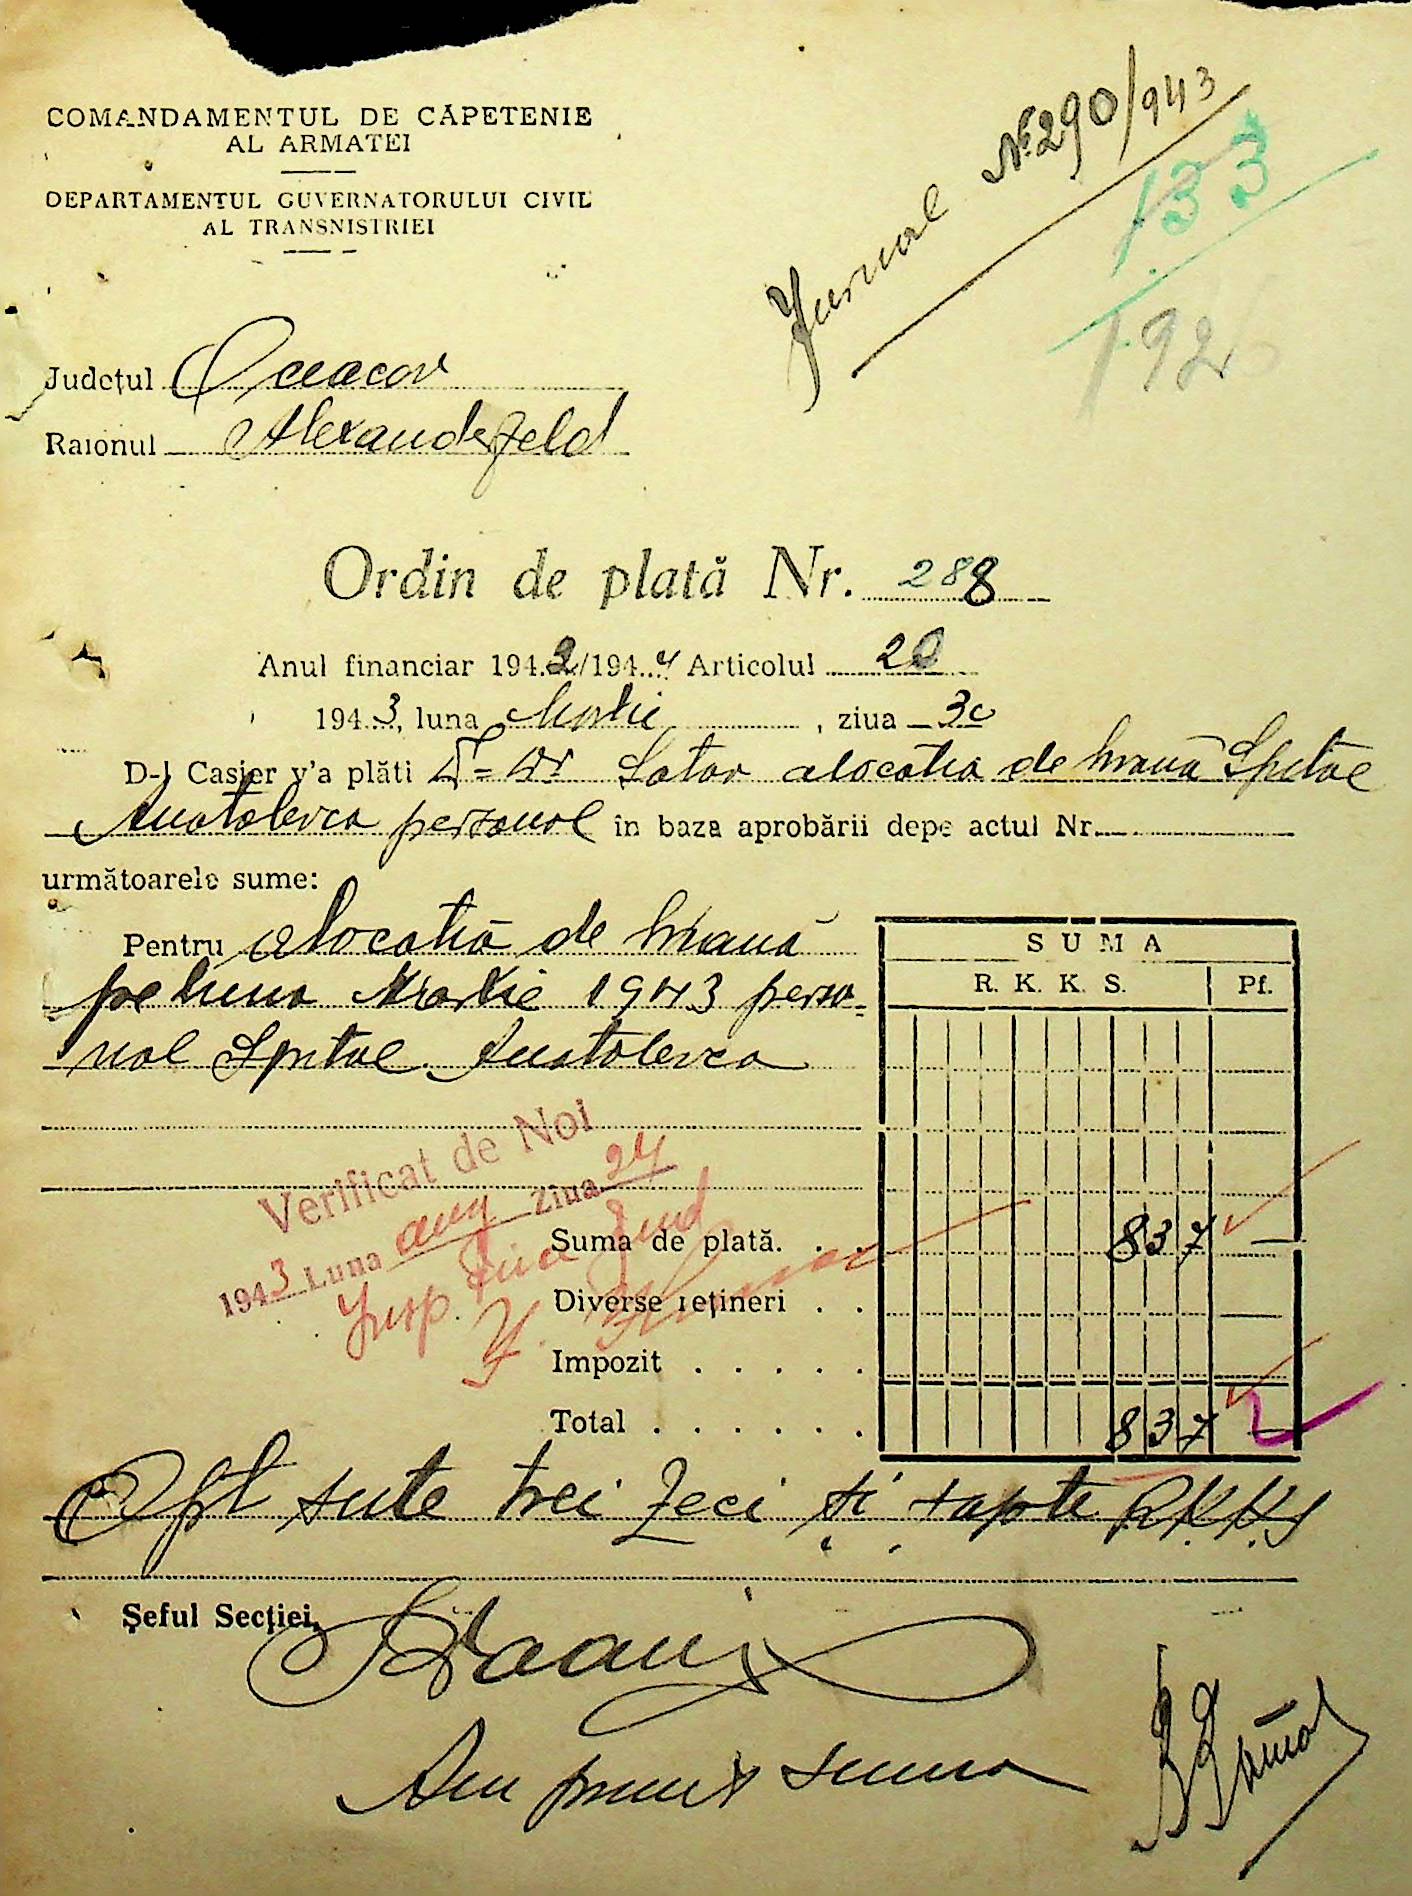 COMANDAMENTUL DE CĂPETENIE
AL ARMATEI
DEPARTAMENTUL GUVERNATORULUI CIVIL
AL TRANSNISTRIEI
Jurnal № 290/943
133
192
Județul Oceacov
Raionul Alexanderfeld
Ordin de plată Nr. 288
Anul financiar 1942/194 Articolul 20
1943, luna Martie, ziua 30
D-l Casier v'a plăti alocatia de hrană Spital
Anatolevca personal în baza aprobării depe actul Nr.
următoarele sume:
Pentru alocatia de hrană
pe luna Martie 1943 perso-
nal Spital Anatolevca
SUMA
R. K. K. S. Pf.
Verificat de Noi
1943 Luna aug Ziua 24
Insp.
Suma de plată. . . 837 —
Diverse rețineri . .
Impozit . . . . .
Total . . . . . . 837 —
Opt sute trei zeci și șapte R.K.K.S
Șeful Secției,
Am primit suma